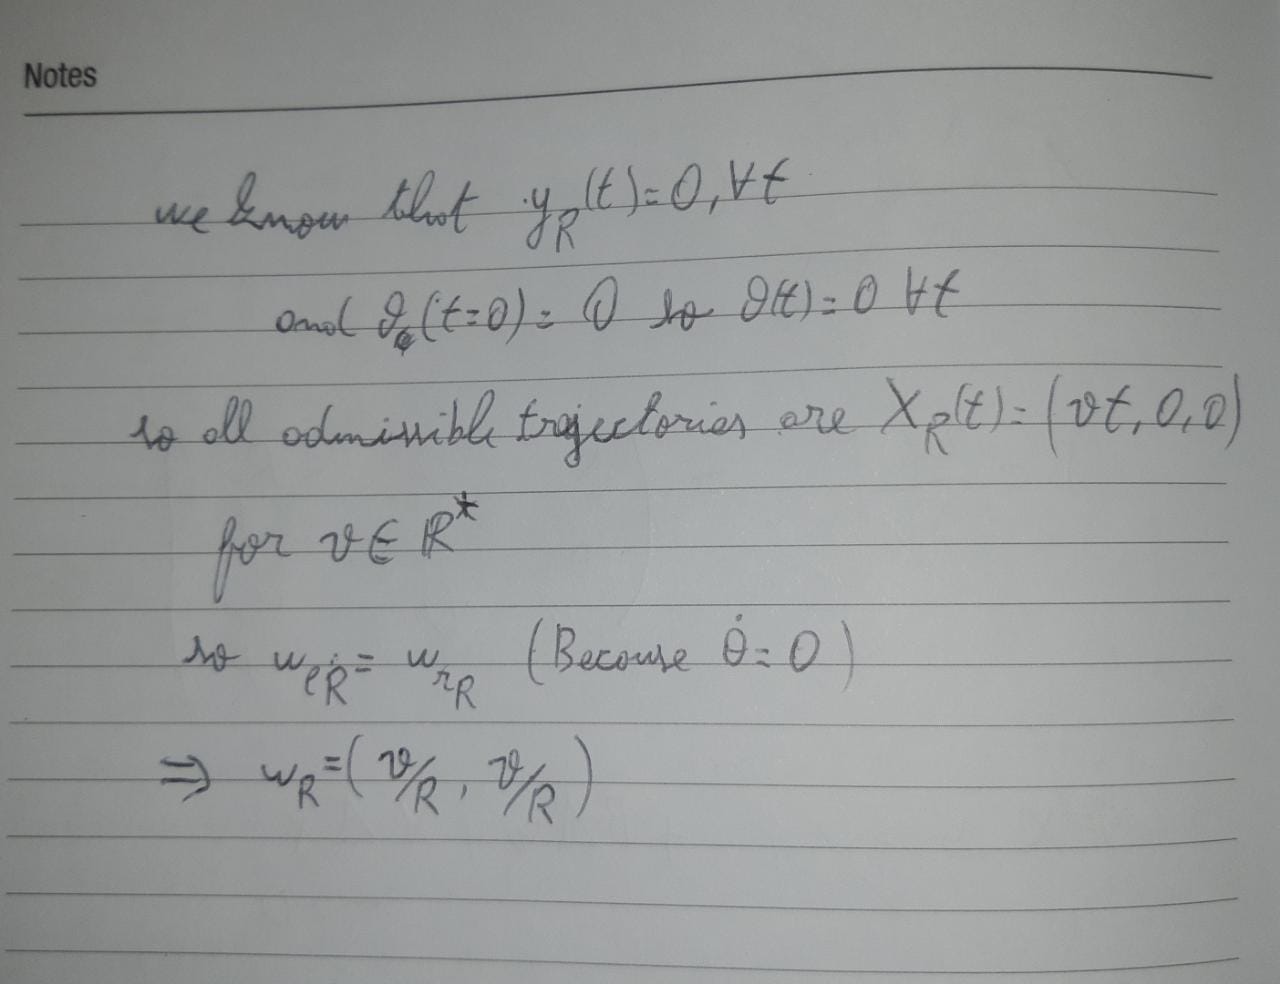 Notes
we know that y_R(t)=0, ∀t
and θ(t=0)= 0 so θ(t)=0 ∀t
so all admissible trajectories are X_R(t)=(vt,0,0)
for v∈ℝ*
so w_{ℓR}= w_{rR} (Because θ̇=0)
⇒ w_R=(v/R, v/R)